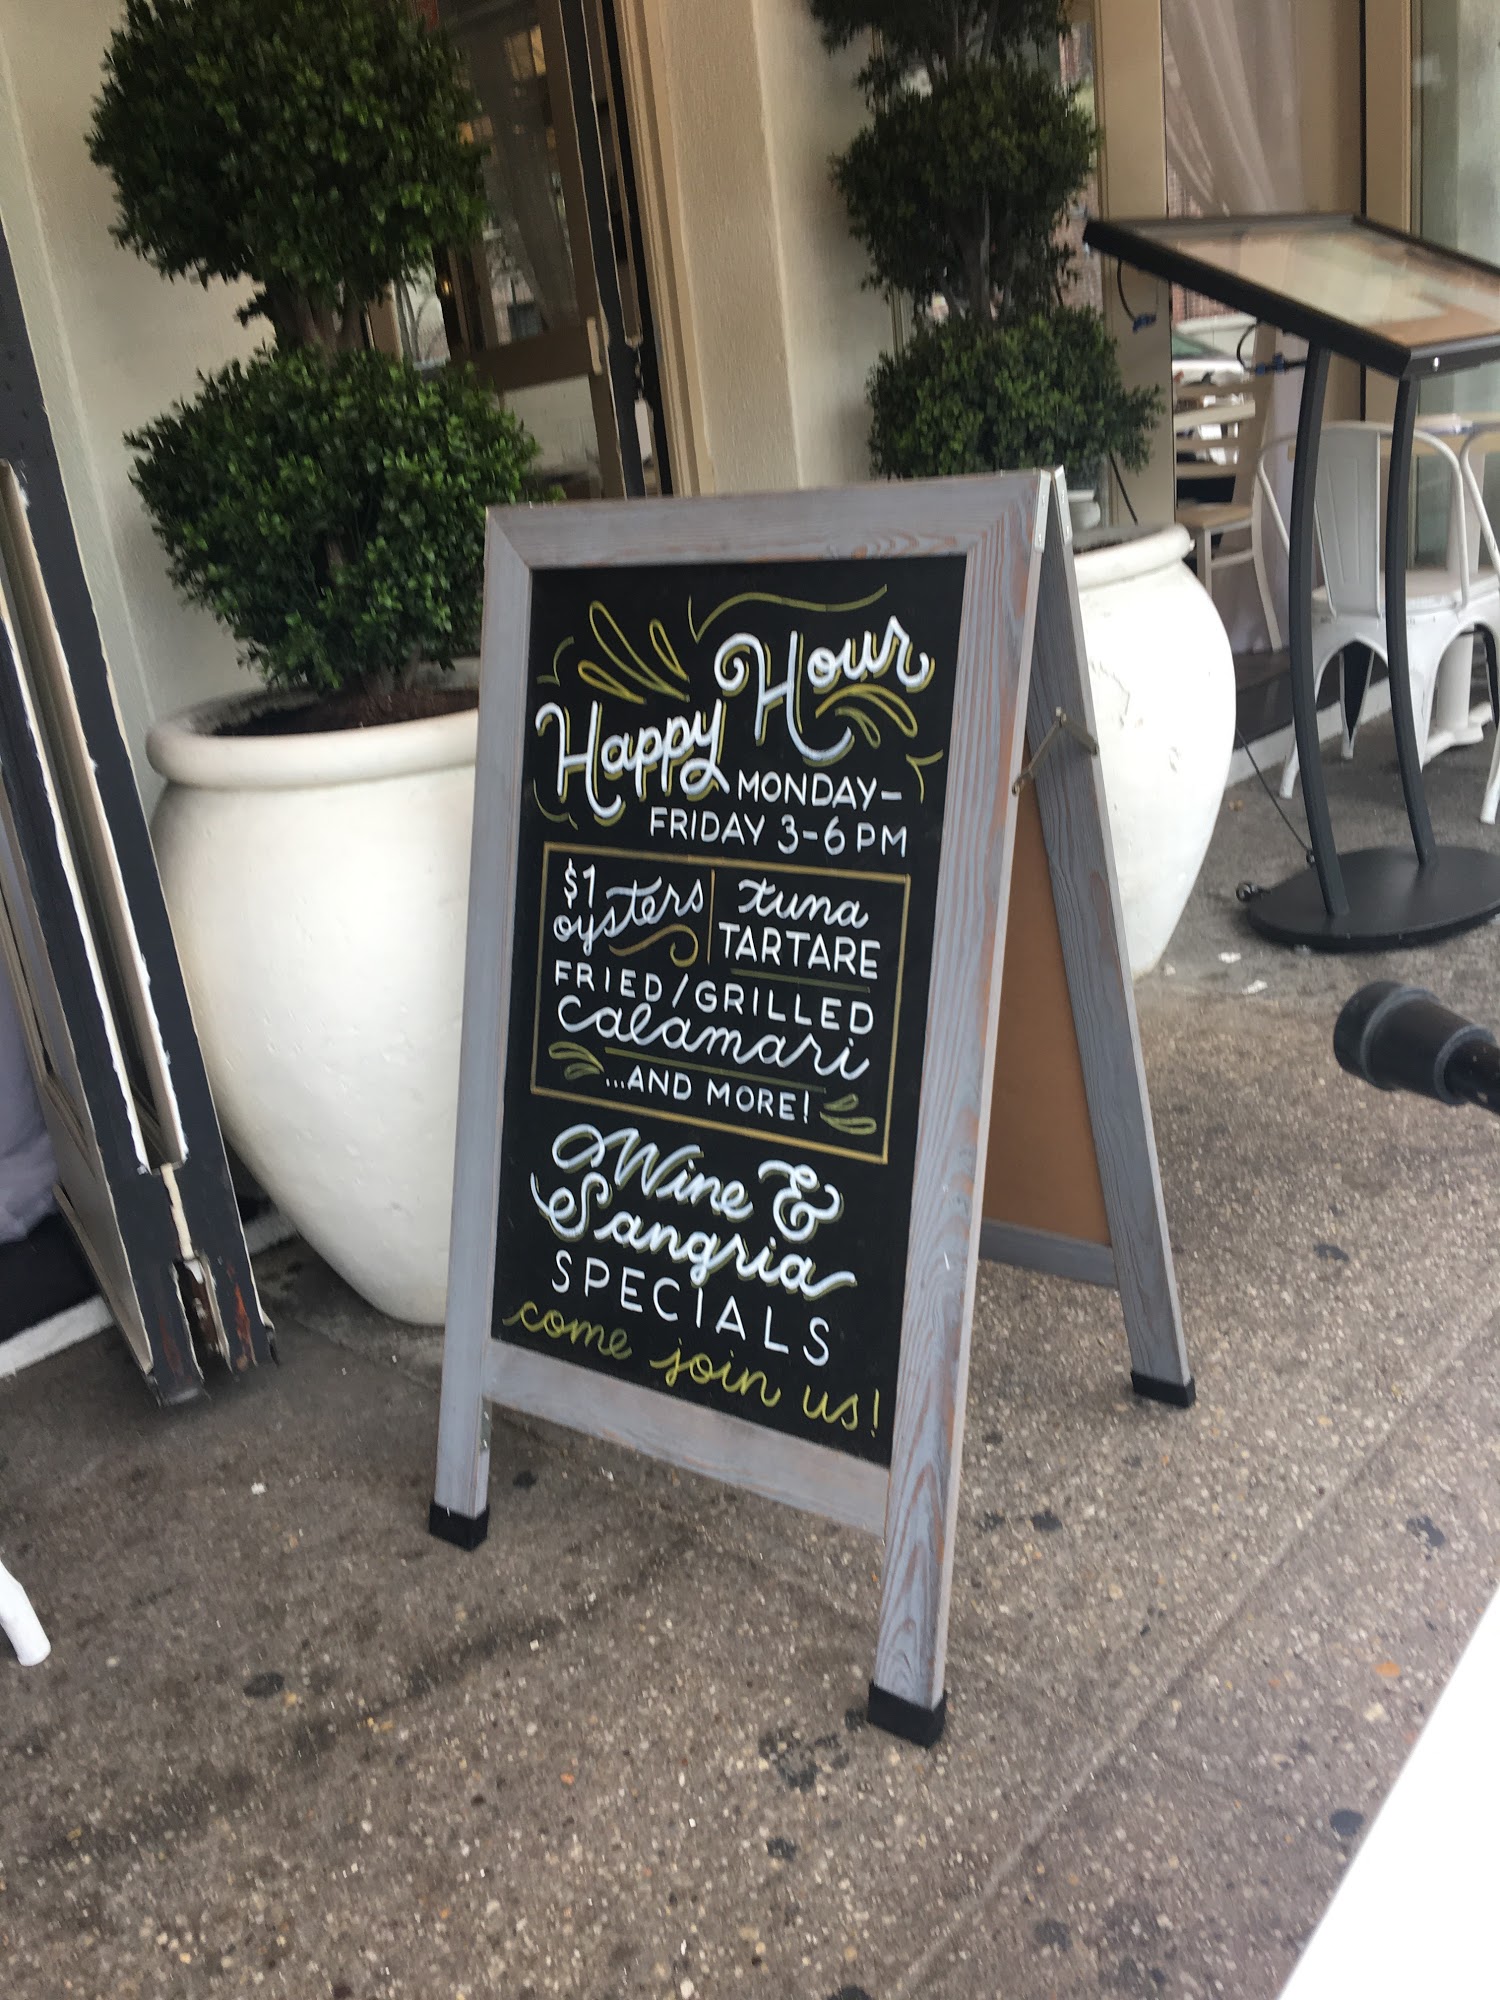 Happy Hour
MONDAY-
FRIDAY 3-6PM
$1
oysters
tuna
TARTARE
FRIED/GRILLED
calamari
...AND MORE!
Wine &
Sangria
SPECIALS
come join us!